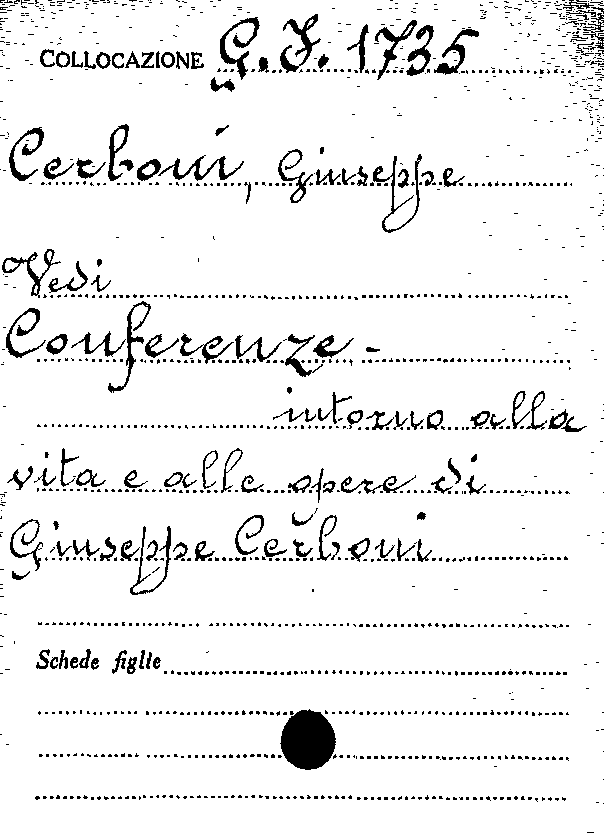 COLLOCAZIONE G. I. 1735
Cerboni, Giuseppe
Vedi
Conferenze -
intorno alla
vita e alle opere di
Giuseppe Cerboni
Schede figlie